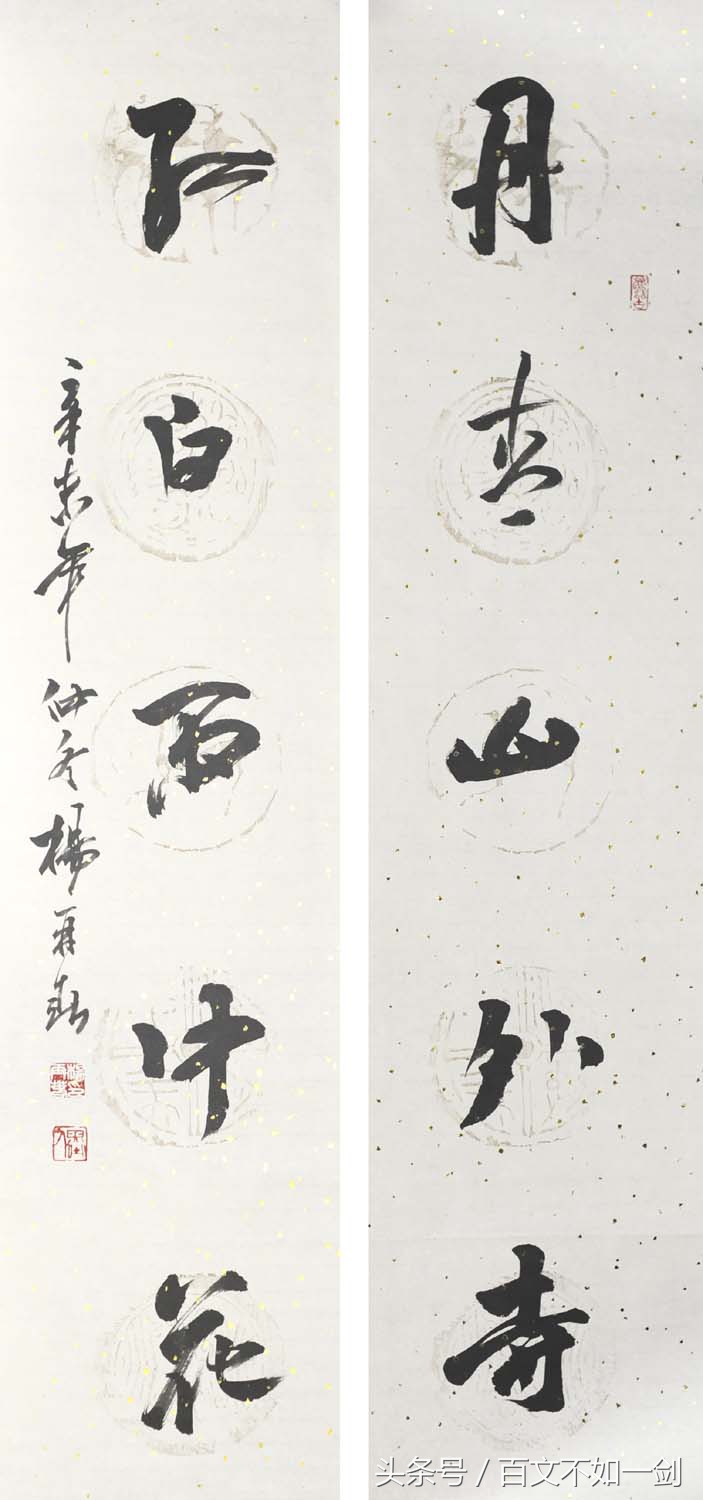 丹青山外寺
红白雨中花
辛未年仲冬杨再春
头条号 / 百文不如一剑